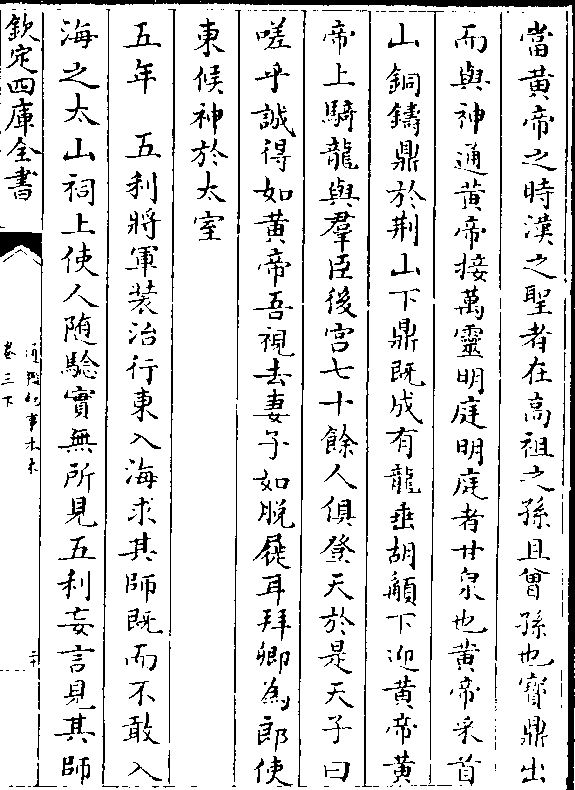 當黃帝之時漢之聖者在高祖之孫且曾孫也寶鼎出
而與神通黃帝接萬靈明庭明庭者甘泉也黃帝采首
山銅鑄鼎於荆山下鼎既成有龍垂胡髯下迎黃帝黃
帝上騎龍與羣臣後宫七十餘人俱登天於是天子曰
嗟乎誠得如黃帝吾視去妻子如脫屣耳拜卿為郎使
東候神於太室
五年　五利將軍裝治行東入海求其師既而不敢入
海之太山祠上使人随驗實無所見五利妄言見其師
欽定四庫全書
通鑑紀事本末
卷三下